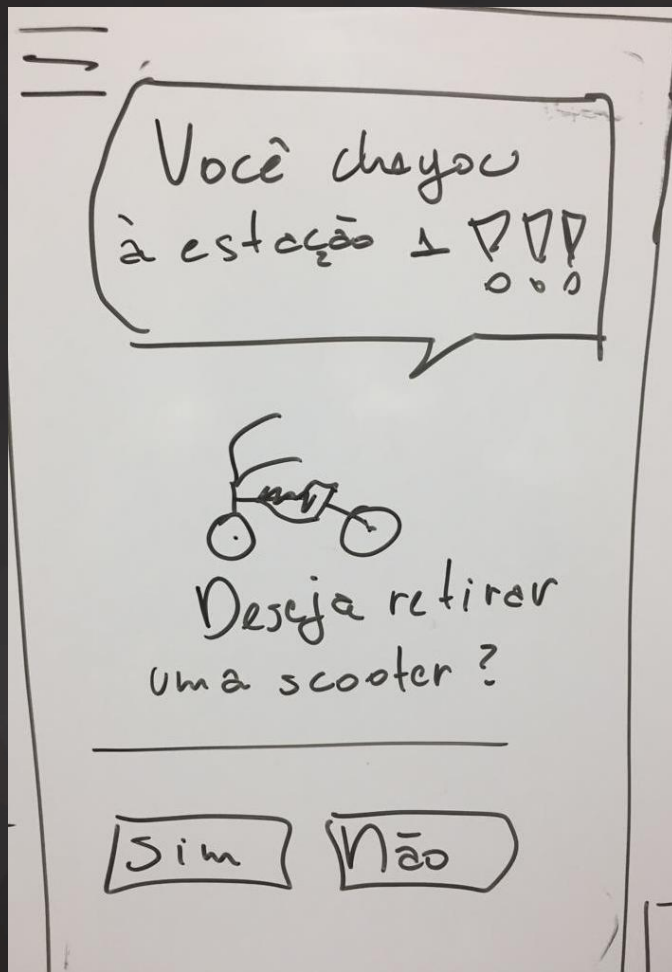 Você chegou
à estação 1 !!!
Deseja retirar
uma scooter?
Sim
Não